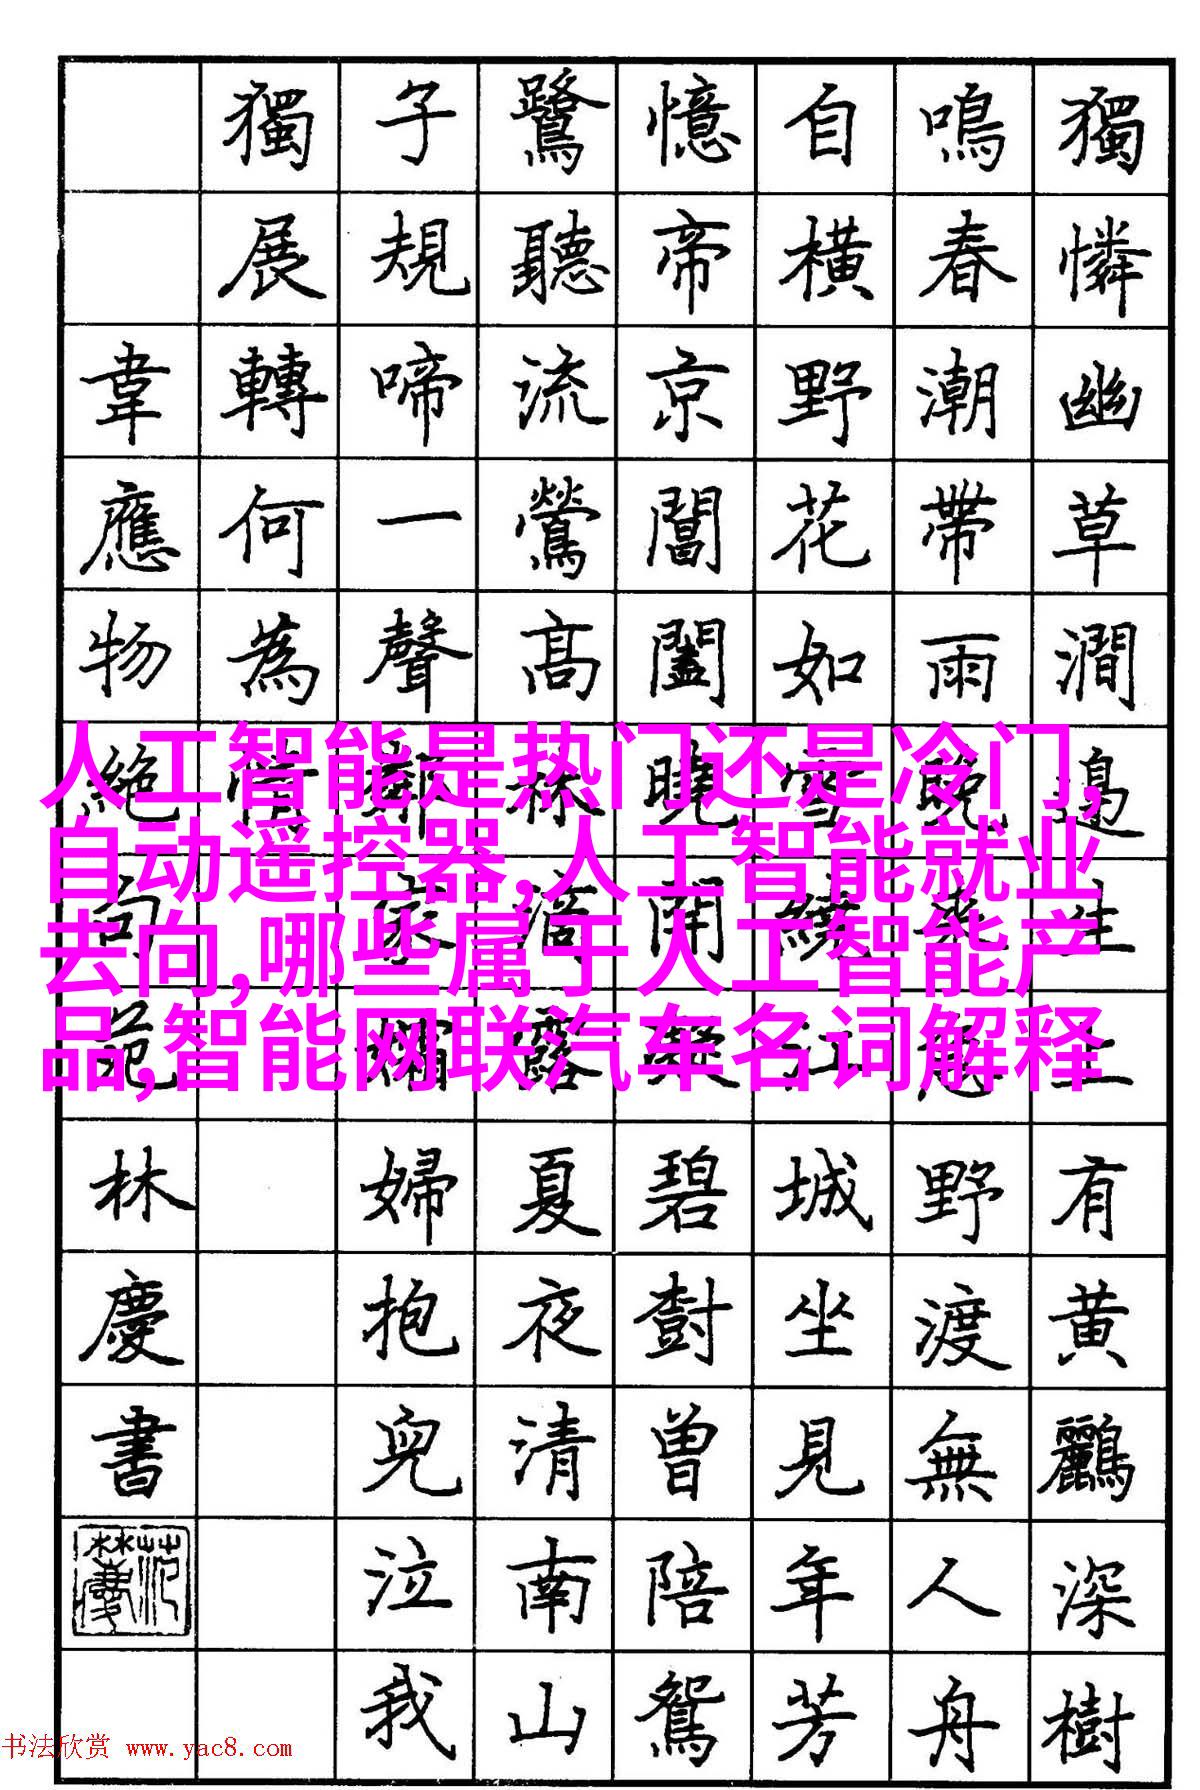 獨憐幽草澗邊生上有黄鸝深樹
鳴春潮帶雨晚來急野渡無人舟
自横野花如雪繞江城坐見年芳
憶帝京閶闔曉開凝碧樹曾陪鴛
鷺聽流鶯高林滴露夏夜清南山
子規啼一聲鄰家孀婦抱兒泣我
獨展轉何為情
韋應物絕句范林慶書
人工智能是热门还是冷门,
自动遥控器,人工智能就业
去向,哪些属于人工智能产
品,智能网联汽车名词解释
书法欣赏 www.yac8.com